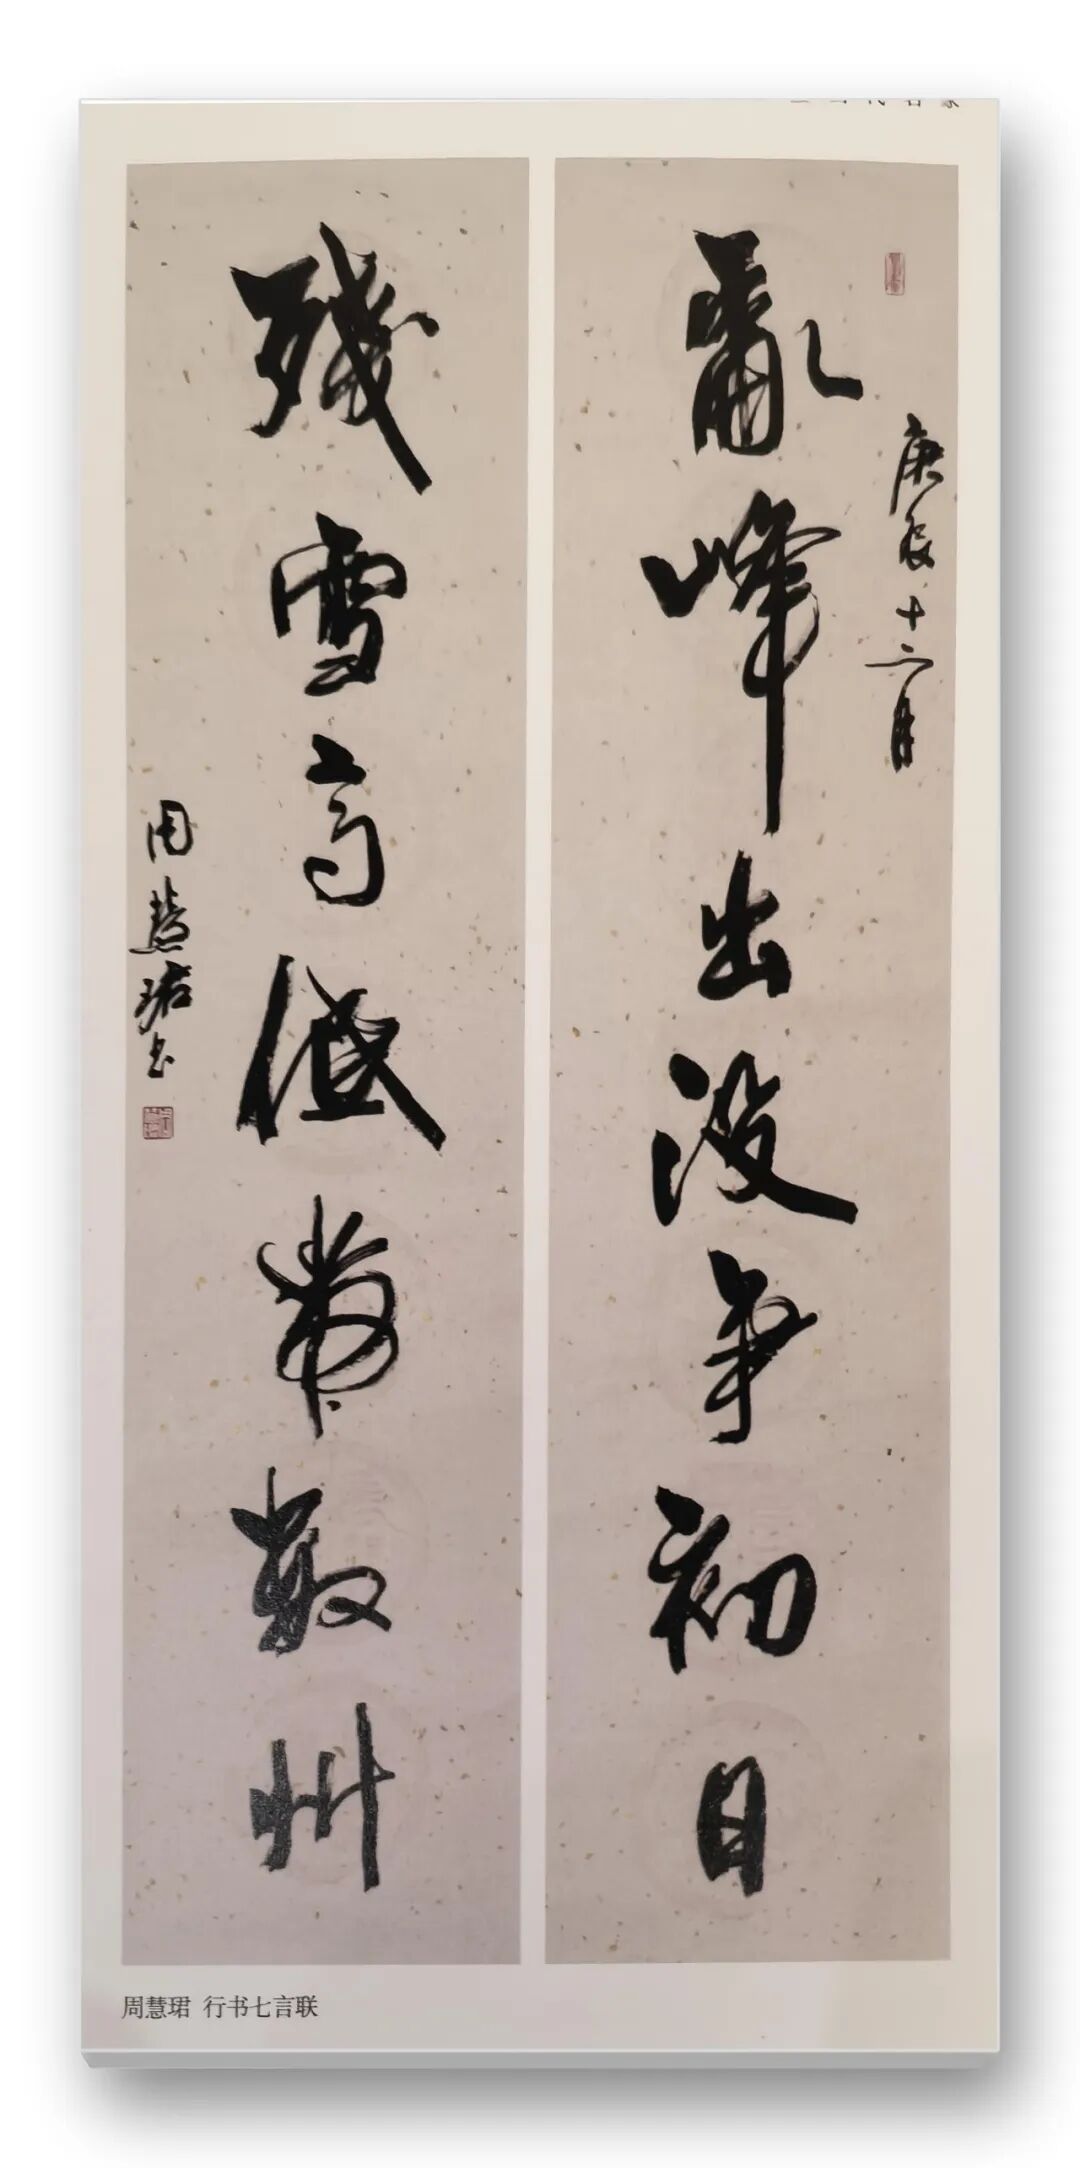 庚辰十二月
亂峰出没爭初日
殘雪高低帶數州
周慧珺书
周慧珺 行书七言联